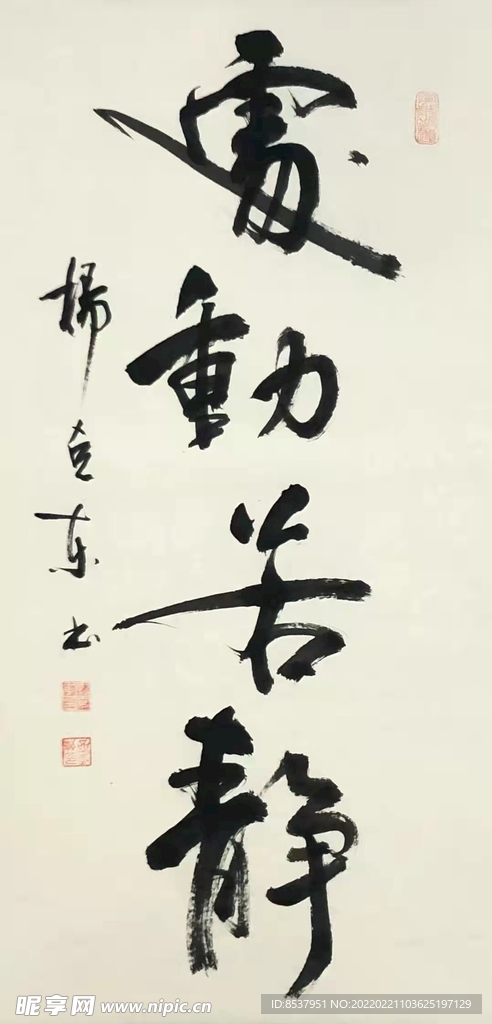 處動若静
楊东书
昵享网 www.nipic.cn
ID:8537951 NO:20220221103625197129